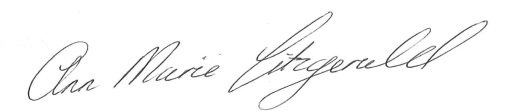 Ann Marie Fitzgerald